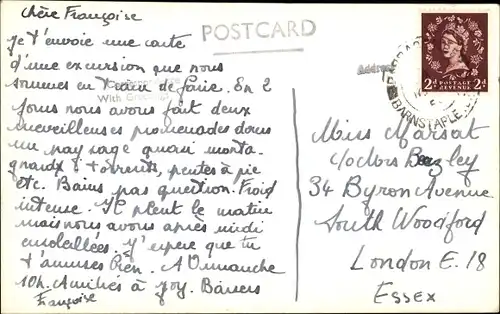 Chère Françoise
POSTCARD
Je t'envoie une carte
d'une excursion que nous
sommes en train de faire. En 2
jours nous avons fait deux
With
merveilleuses promenades dans
un paysage quasi monta-
gnardx & torrents, pentes à pic
etc. Bains pas question. Froid
intense. Il pleut le matin
mais nous avons après midi
ensoleillées. J'espère que tu
t'amuses bien. A Dimanche
10h. Amitiés à Joy. Baisers
Françoise
2d POSTAGE REVENUE 2d
BARNSTAPLE
Miss Marsat
c/o Mrs Bezley
34 Byron Avenue
South Woodford
London E.18
Essex